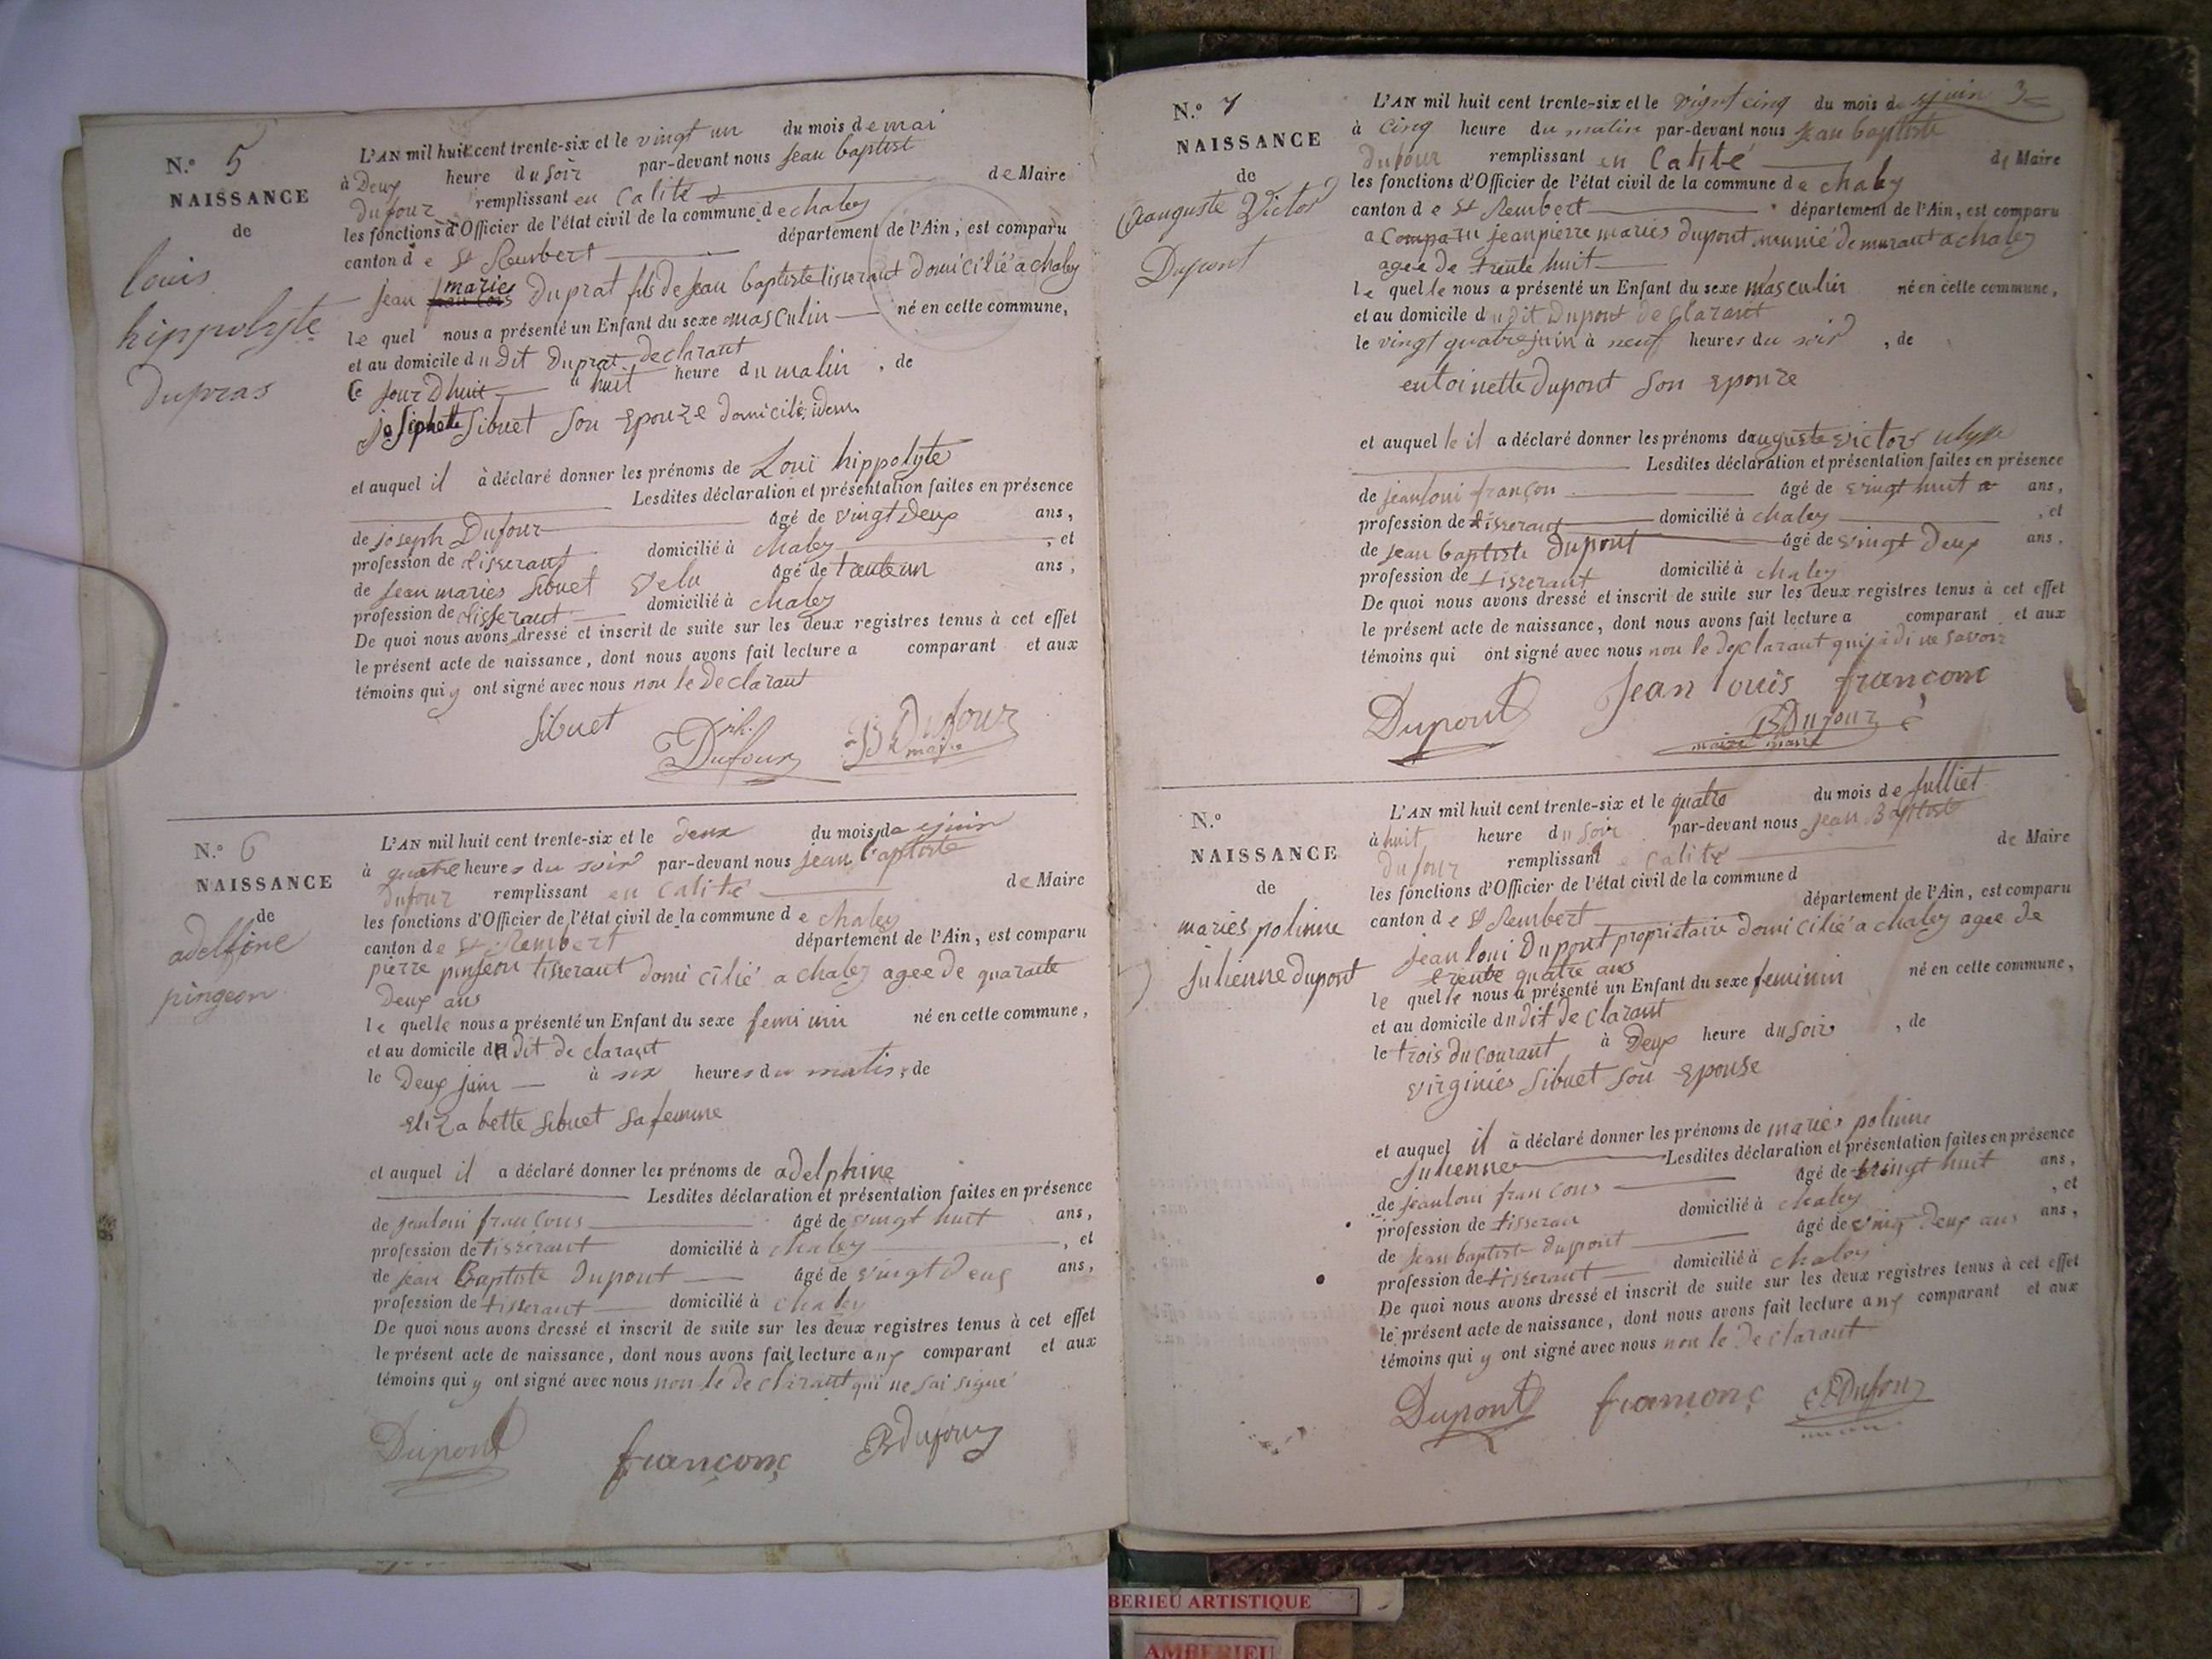 N.º 5
NAISSANCE
de
louis
hippolyte
dupras
L'AN mil huit cent trente-six et le vingt un du mois de mai
à Deux heure du soir par-devant nous jean baptist
dufour remplissant en calité de Maire
les fonctions d'Officier de l'état civil de la commune de chaley
canton de St Rembert département de l'Ain, est comparu
jean maries Duprat fils de jean baptiste tisserant domicilié a chaley
le quel nous a présenté un Enfant du sexe masculin né en cette commune,
et au domicile du dit duprat declarant
le jour dhuit a huit heure du matin, de
josiphette sibuet son epouze domicilé idem
et auquel il à déclaré donner les prénoms de Loui hippolyte
Lesdites déclaration et présentation faites en présence
de joseph Dufour âgé de vingt Deux ans,
profession de tisserant domicilié à chaley, et
de jean maries sibuet âgé de trente un ans,
profession de tisserant domicilié à chaley
De quoi nous avons dressé et inscrit de suite sur les deux registres tenus à cet effet
le présent acte de naissance, dont nous avons fait lecture a comparant et aux
témoins qui y ont signé avec nous non le declarant
Sibuet Dufour BDufour maire
N.º 6
NAISSANCE
de
adelfine
pingeon
L'AN mil huit cent trente-six et le deux du mois de juin
à quatre heures du soir par-devant nous jean baptiste
dufour remplissant en calité de Maire
les fonctions d'Officier de l'état civil de la commune de chaley
canton de St Rembert département de l'Ain, est comparu
pierre pinjeon tisserant domicilié a chaley agee de quarante
Deux ans
le quelle nous a présenté un Enfant du sexe feminin né en cette commune,
et au domicile du dit declarant
le Deux juin à six heures du matin, de
elizabette sibuet sa femme
et auquel il a déclaré donner les prénoms de adelphine
Lesdites déclaration et présentation faites en présence
de jeanloui françons âgé de vingt huit ans,
profession de tisserant domicilié à chaley, et
de jean Baptiste Dupont âgé de vingt deux ans,
profession de tisserant domicilié à chaley
De quoi nous avons dressé et inscrit de suite sur les deux registres tenus à cet effet
le présent acte de naissance, dont nous avons fait lecture aux comparant et aux
témoins qui y ont signé avec nous non le declarant qui ne sai signé
Dupont françonc BDufour
N.º 7
NAISSANCE
de
auguste Victor
Dupont
L'AN mil huit cent trente-six et le vignt cinq du mois de juin 3
à cinq heure du matin par-devant nous jean baptiste
dufour remplissant en calité de Maire
les fonctions d'Officier de l'état civil de la commune de chaley
canton de St Rembert département de l'Ain, est comparu
a comparu jeanpierre maries dupont demurant a chaley
agee de trente huit
le quelle nous a présenté un Enfant du sexe masculin né en cette commune,
et au domicile du dit Dupont declarant
le vingt quatre juin à neuf heures du soir, de
entoinette dupont son epouze
et auquel le il a déclaré donner les prénoms dauguste victor ulysse
Lesdites déclaration et présentation faites en présence
de jeanloui françon âgé de vingt huit ans,
profession de tisserant domicilié à chaley, et
de jean baptiste dupont âgé de vingt Deux ans,
profession de tisserant domicilié à chaley
De quoi nous avons dressé et inscrit de suite sur les deux registres tenus à cet effet
le présent acte de naissance, dont nous avons fait lecture a comparant et aux
témoins qui ont signé avec nous non le declarant qui a di ne savoir
Dupont jean louis françonc
BDufour maire
N.º
NAISSANCE
de
maries polinne
julienne dupont
L'AN mil huit cent trente-six et le quatre du mois de julliet
à huit heure du soir par-devant nous jean Baptiste
dufour remplissant e calité de Maire
les fonctions d'Officier de l'état civil de la commune d
canton de St Rembert département de l'Ain, est comparu
jean loui Dupont propriétaire domicilié a chaley agee de
trente quatre ans
le quelle nous a présenté un Enfant du sexe feminin né en cette commune,
et au domicile du dit declarant
le trois du courant à Deux heure du soir, de
virginies sibuet son epouse
et auquel il à déclaré donner les prénoms de maries polinne
julienne Lesdites déclaration et présentation faites en présence
de jeanloui françons âgé de vingt huit ans,
profession de tisseran domicilié à chaley, et
de jean baptiste dupont âgé de vingt Deux ans ans,
profession de tisserant domicilié à chaley
De quoi nous avons dressé et inscrit de suite sur les deux registres tenus à cet effet
le présent acte de naissance, dont nous avons fait lecture aux comparant et aux
témoins qui y ont signé avec nous non le declarant
Dupont françonc BDufour
BERIEU ARTISTIQUE
AMBERIEU